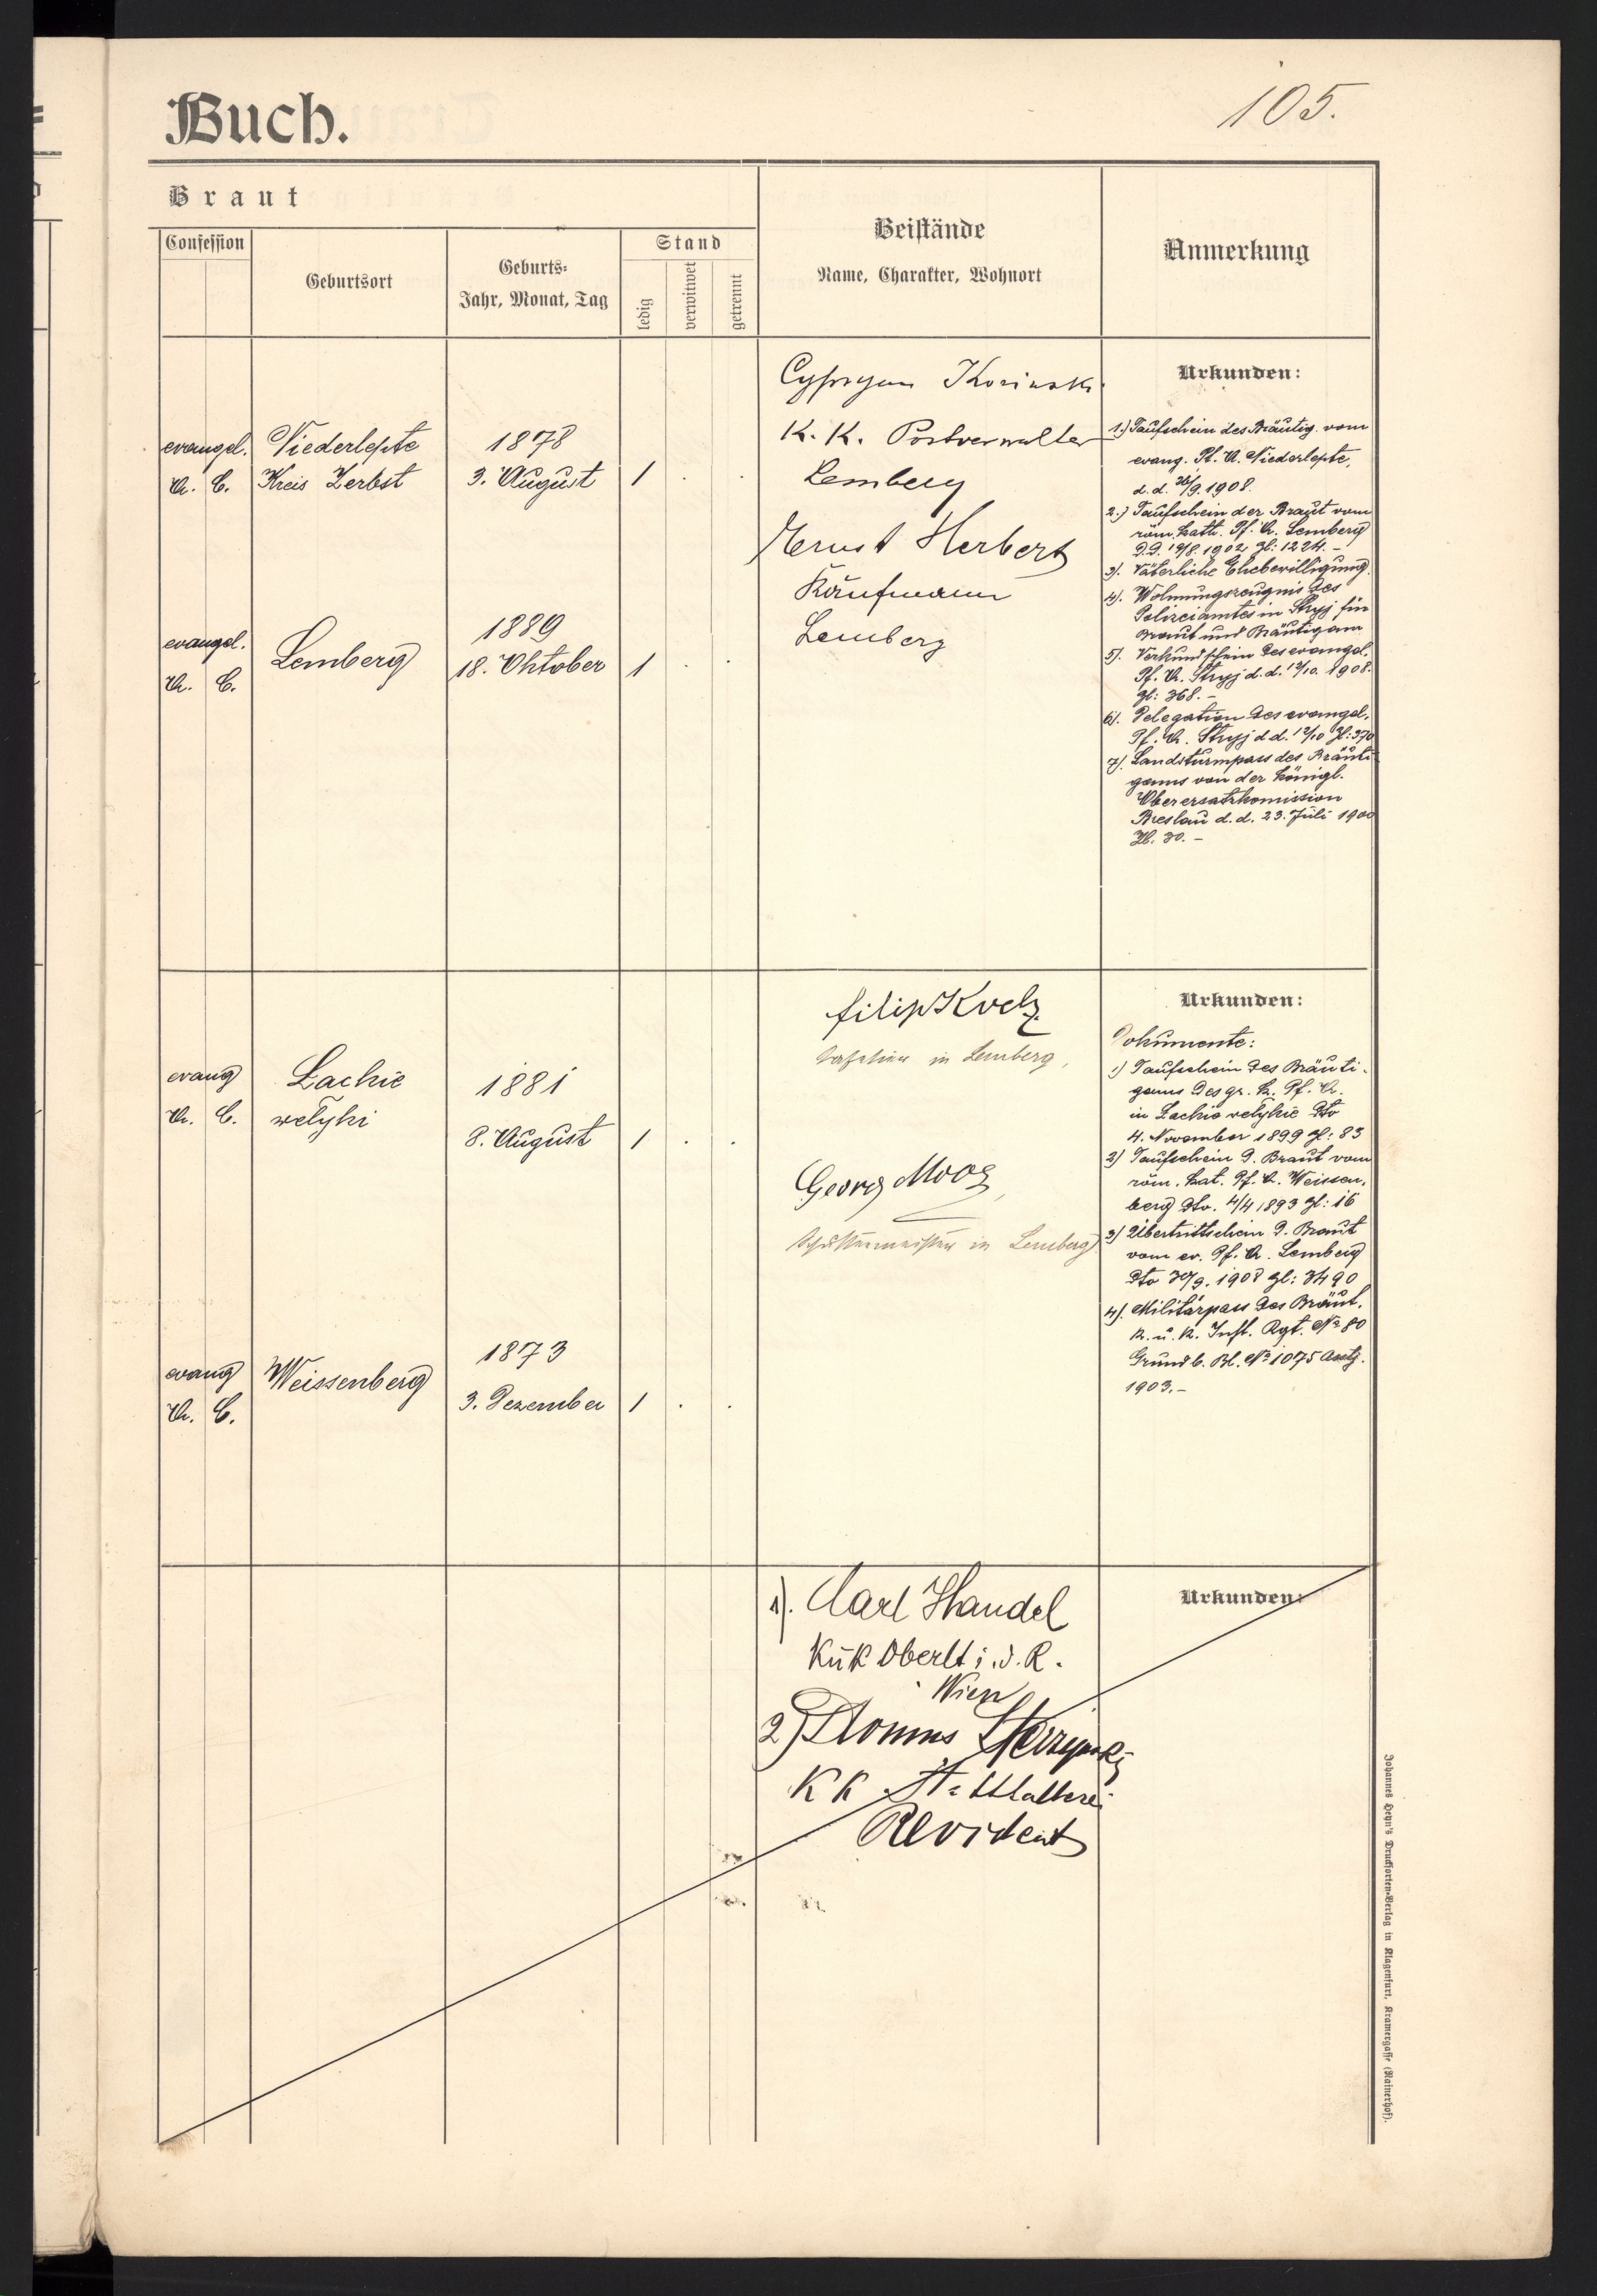 Buch.
105.
Braut
Confession
Geburtsort
Geburts-
Jahr, Monat, Tag
Stand
ledig
verwitwet
getrennt
Beistände
Name, Charakter, Wohnort
Anmerkung
evangel.
A. C.
Niederlepte
Kreis Zerbst
1878
3. August
1 . .
evangel.
A. C.
Lemberg
1889
18. Oktober
1 . .
K. K. Postverwalter
Lemberg
Ernst Herbert
Kaufmann
Lemberg
Urkunden:
1.) Taufschein des Bräutig. vom
evang. Pf. A. Niederlepte,
d. d. 26/9. 1908.
2.) Taufschein der Braut vom
röm. kath. Pf. A. Lemberg
d. d. 19/8. 1902 Zl: 1224. –
3). Väterliche Ehebewilligung.
4). Wohnungszeugnis des
Polizeiamtes in Stryj für
Braut und Bräutigam
5). Verkundschein des evangel.
Pf. A. Stryj d. d. 12/10. 1908.
Zl: 368. –
6). Delegation des evangel.
Pf. A. Stryj d d. 12/10 Zl: 370
7). Landsturmpass des Bräuti-
gams von der königl.
Oberersatzkomission
Breslau d. d. 23. Juli 1900
Zl. 30. –
evang
A. C.
Lachie
welyki
1881
8. August
1 . .
evang
A. C.
Weissenberg
1873
3. Dezember
1 . .
in Lemberg,
Georg Mooz
Schustermeister in Lemberg
Urkunden:
Dokumente:
1) Taufschein des Bräuti-
gams des gr. k. Pf. A.
in Lachie welykie dto
4. November 1899 Zl: 83
2) Taufschein d. Braut vom
röm. kat. Pf. A. Weissen-
berg dto. 4/4 1893 Zl: 16
3) Übertrittschein d. Braut
vom ev. Pf. A. Lemberg
dto 30/9. 1908 Zl: 3490
4). Militärpass des Bräut.
k. u. k. Inft. Rgt. No 80
Grundb. Bl. No 1075 Asstj.
1903. –
1). Carl Handel
KuK Oberlt i. d. R.
Wien
2)
K K Statthalterei
Revident
Urkunden:
Johannes Heyn's Drucksorten-Verlag in Klagenfurt, Kramergasse (Rainerhof).